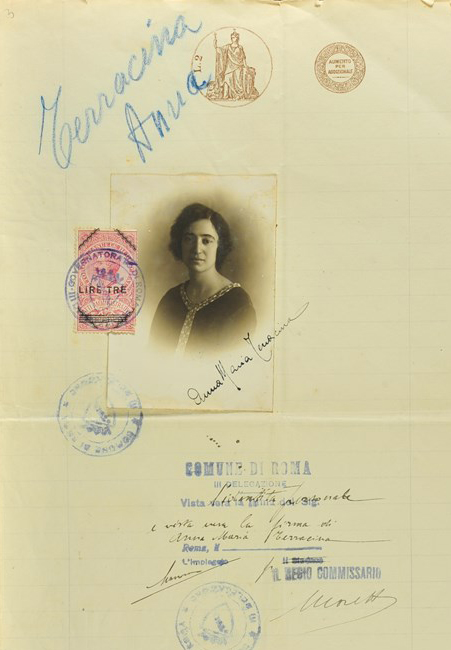 3
Terracina
Anna
L. 2
AUMENTO
PER
ADDIZIONALE
GOVERNATORATO DI
LIRE TRE
Anna Maria Terracina
COMUNE DI
COMUNE DI ROMA
IN DELEGAZIONE
l'identità personale
Vista vera la firma del Sig.
e vista vera la firma di
Anna Maria Terracina
Roma, li
L'Impiegato
Il Sindaco
IL REGIO COMMISSARIO